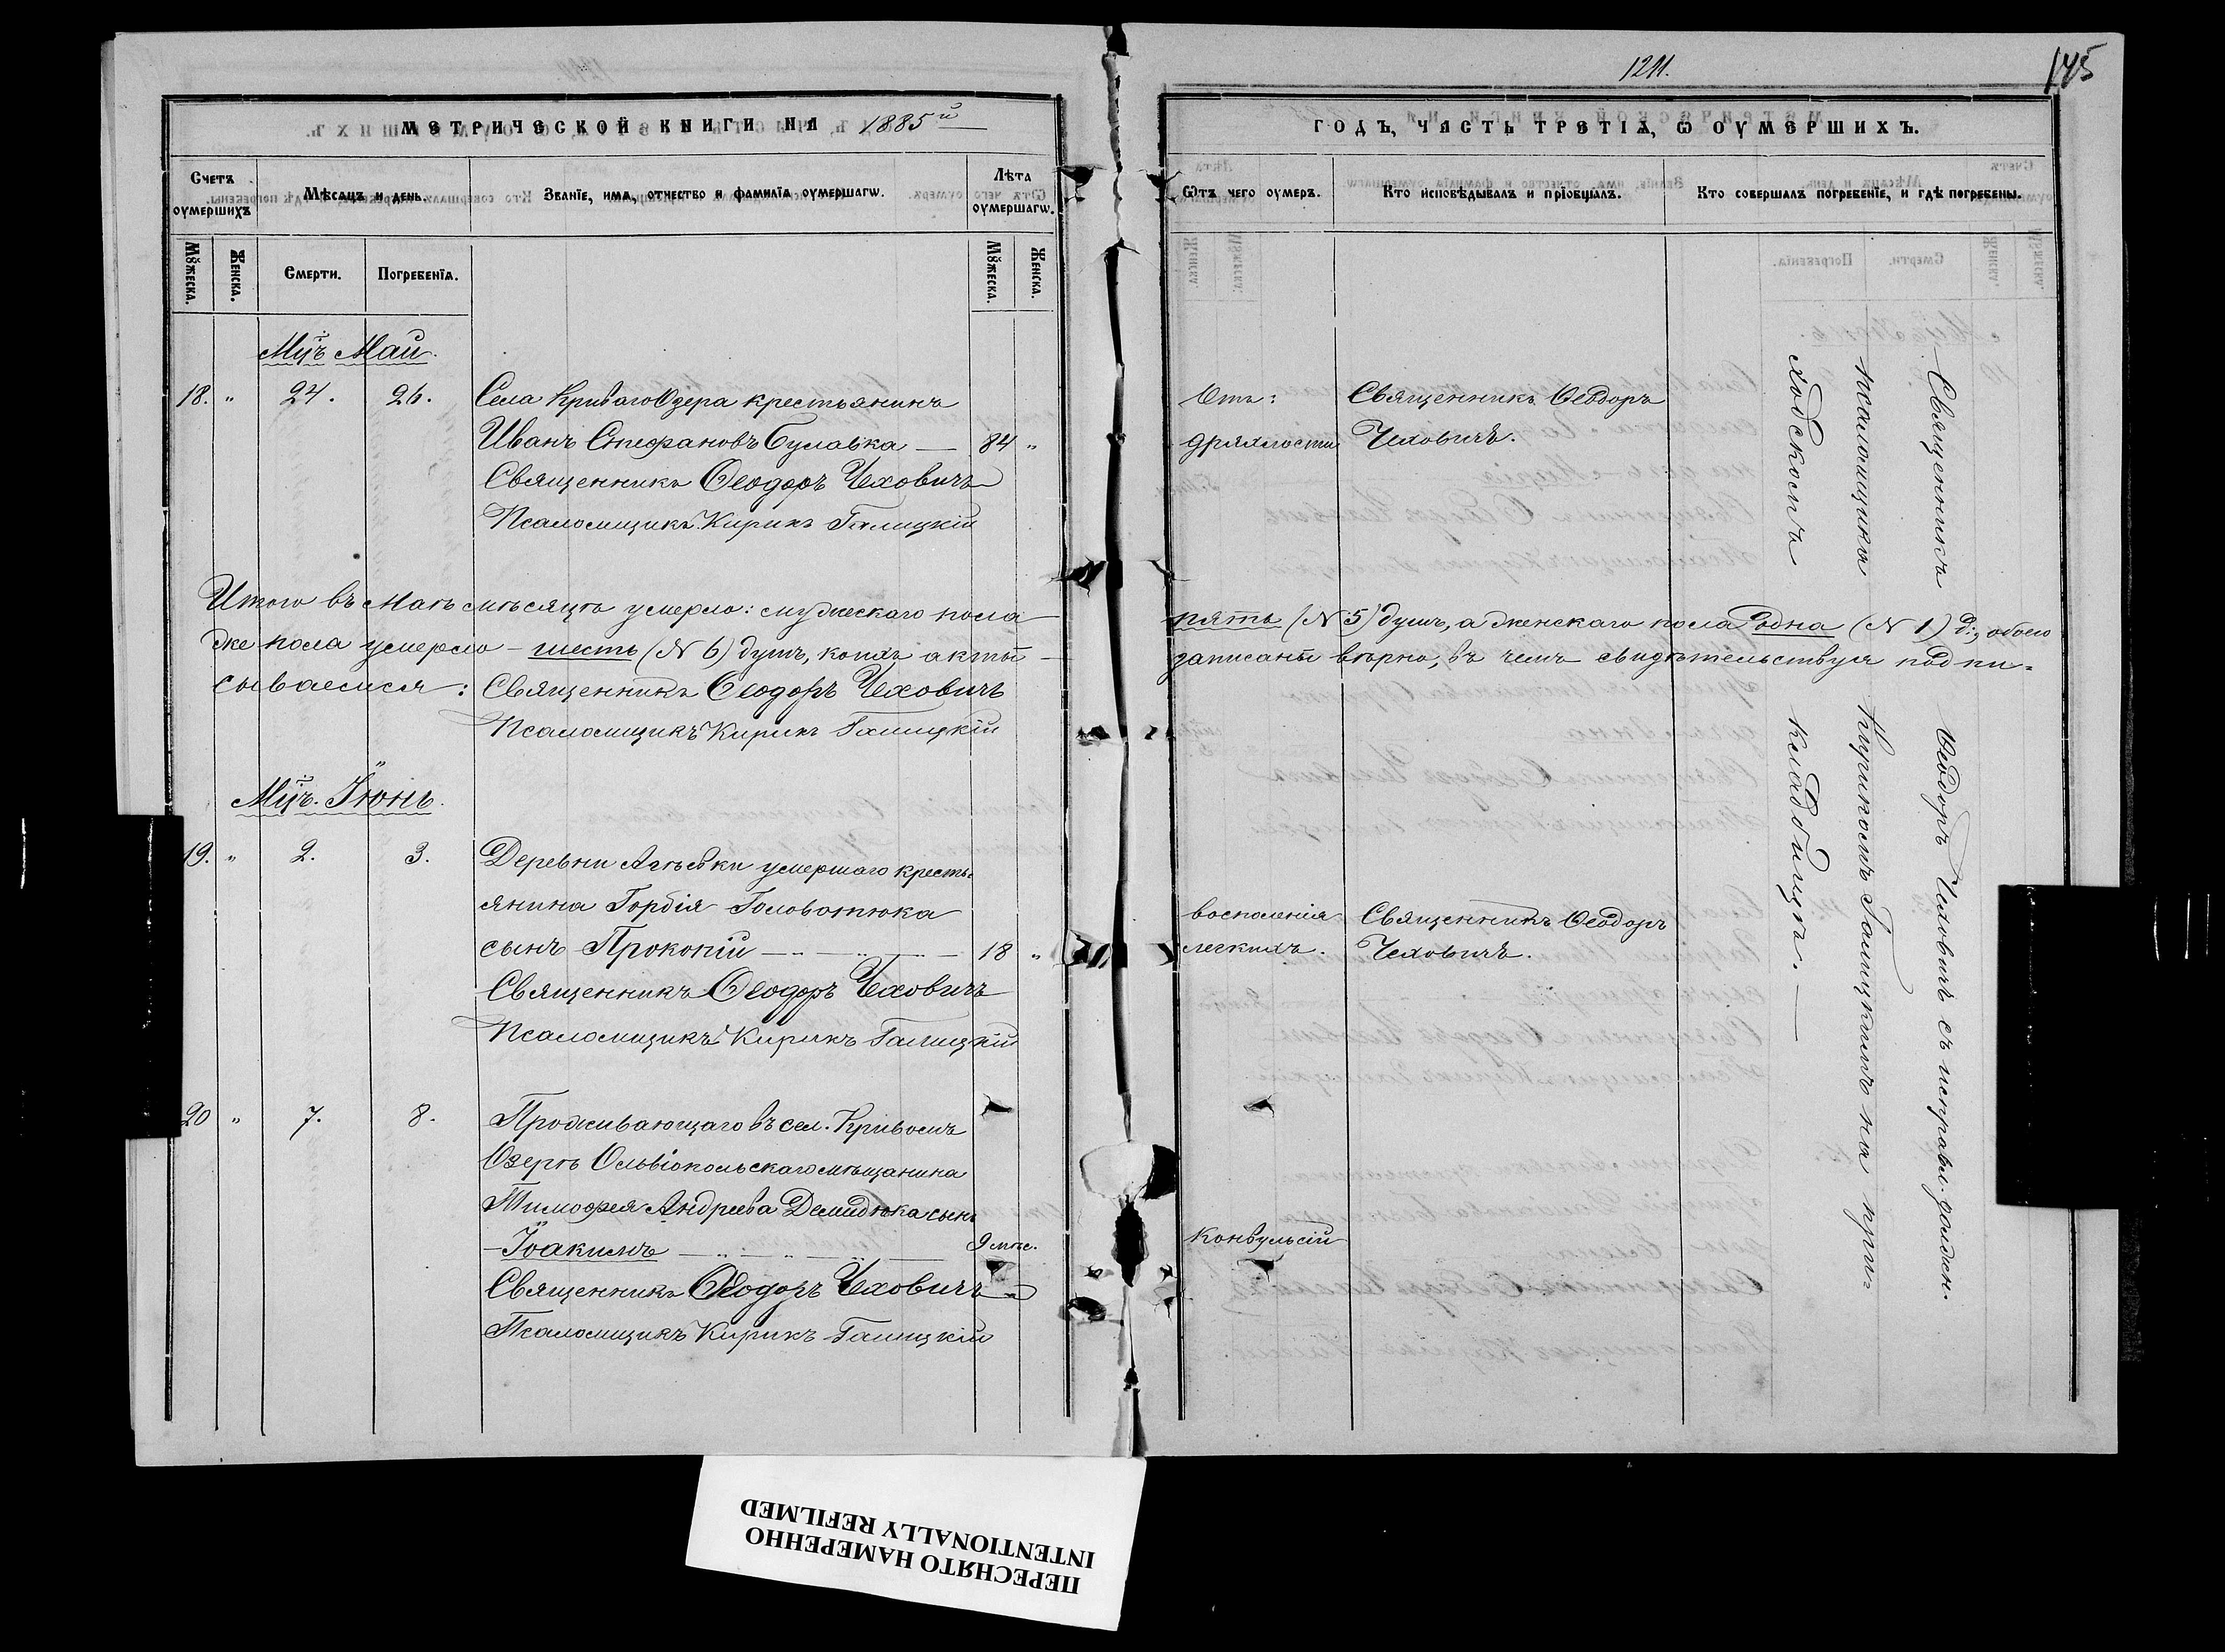 1211.
145
МЕТРИЧЕСКОЙ КНИГИ НА 1885й
ГОДЪ, ЧАСТЬ ТРЕТІЯ, Ѡ ОУМЕРШИХЪ.
Счетъ оумершихъ
Мѣсяцъ и день.
Званіе, имя, отчество и фамилія оумершагѡ.
Лѣта оумершагѡ.
Ѿтъ чего оумеръ.
Кто исповѣдывалъ и пріобщалъ.
Кто совершалъ погребеніе, и гдѣ погребены.
Мꙋжеска.
Женска.
Смерти.
Погребенія.
Мꙋжеска.
Женска.
Мцъ Май.
18. " 24. 26. Села Криваго Озера крестьянинъ
Иванъ Стефановъ Булавка — 84 "
Священникъ Ѳеодоръ Чеховичъ
Псаломщикъ Кирикъ Галицкій
Отъ:
дряхлости
Священникъ Ѳеодоръ
Чеховичъ.
Итого въ Маѣ мѣсяцѣ умерло: мужескаго пола — пять (№ 5) душъ, а женскаго пола одна (№ 1) д:, обоего
же пола умерло – шесть (№ 6) душъ, коихъ акты — записаны вѣрно, въ чемъ свидѣтельствуя подпи-
сываемся: Священникъ Ѳеодоръ Чеховичъ
Псаломщикъ Кирикъ Галицкій
Мцъ. Іюнь.
19. " 2. 3. Деревни умершаго кресть-
янина Гордія Головатюка
сынъ Прокопій — 18 "
Священникъ Ѳеодоръ Чеховичъ
Псаломщикъ Кирикъ Галицкій
воспаленія
легкихъ.
Священникъ Ѳеодоръ
Чеховичъ.
20 " 7. 8. Проживающаго въ сел. Кривомъ
Озерѣ Ольвіопольскаго мѣщанина
Тимофея Андреева Демидюка сынъ
Іоакимъ — 9 мѣс.
Священникъ Ѳеодоръ Чеховичъ
Псаломщикъ Кирикъ Галицкій
конвульсій
Священникъ Ѳеодоръ Чеховичъ съ исправл. должн.
псаломщика Кирикомъ Галицкимъ на при-
ходскомъ кладбищѣ. —
ПЕРЕСНЯТО НАМЕРЕННО
INTENTIONALLY REFILMED